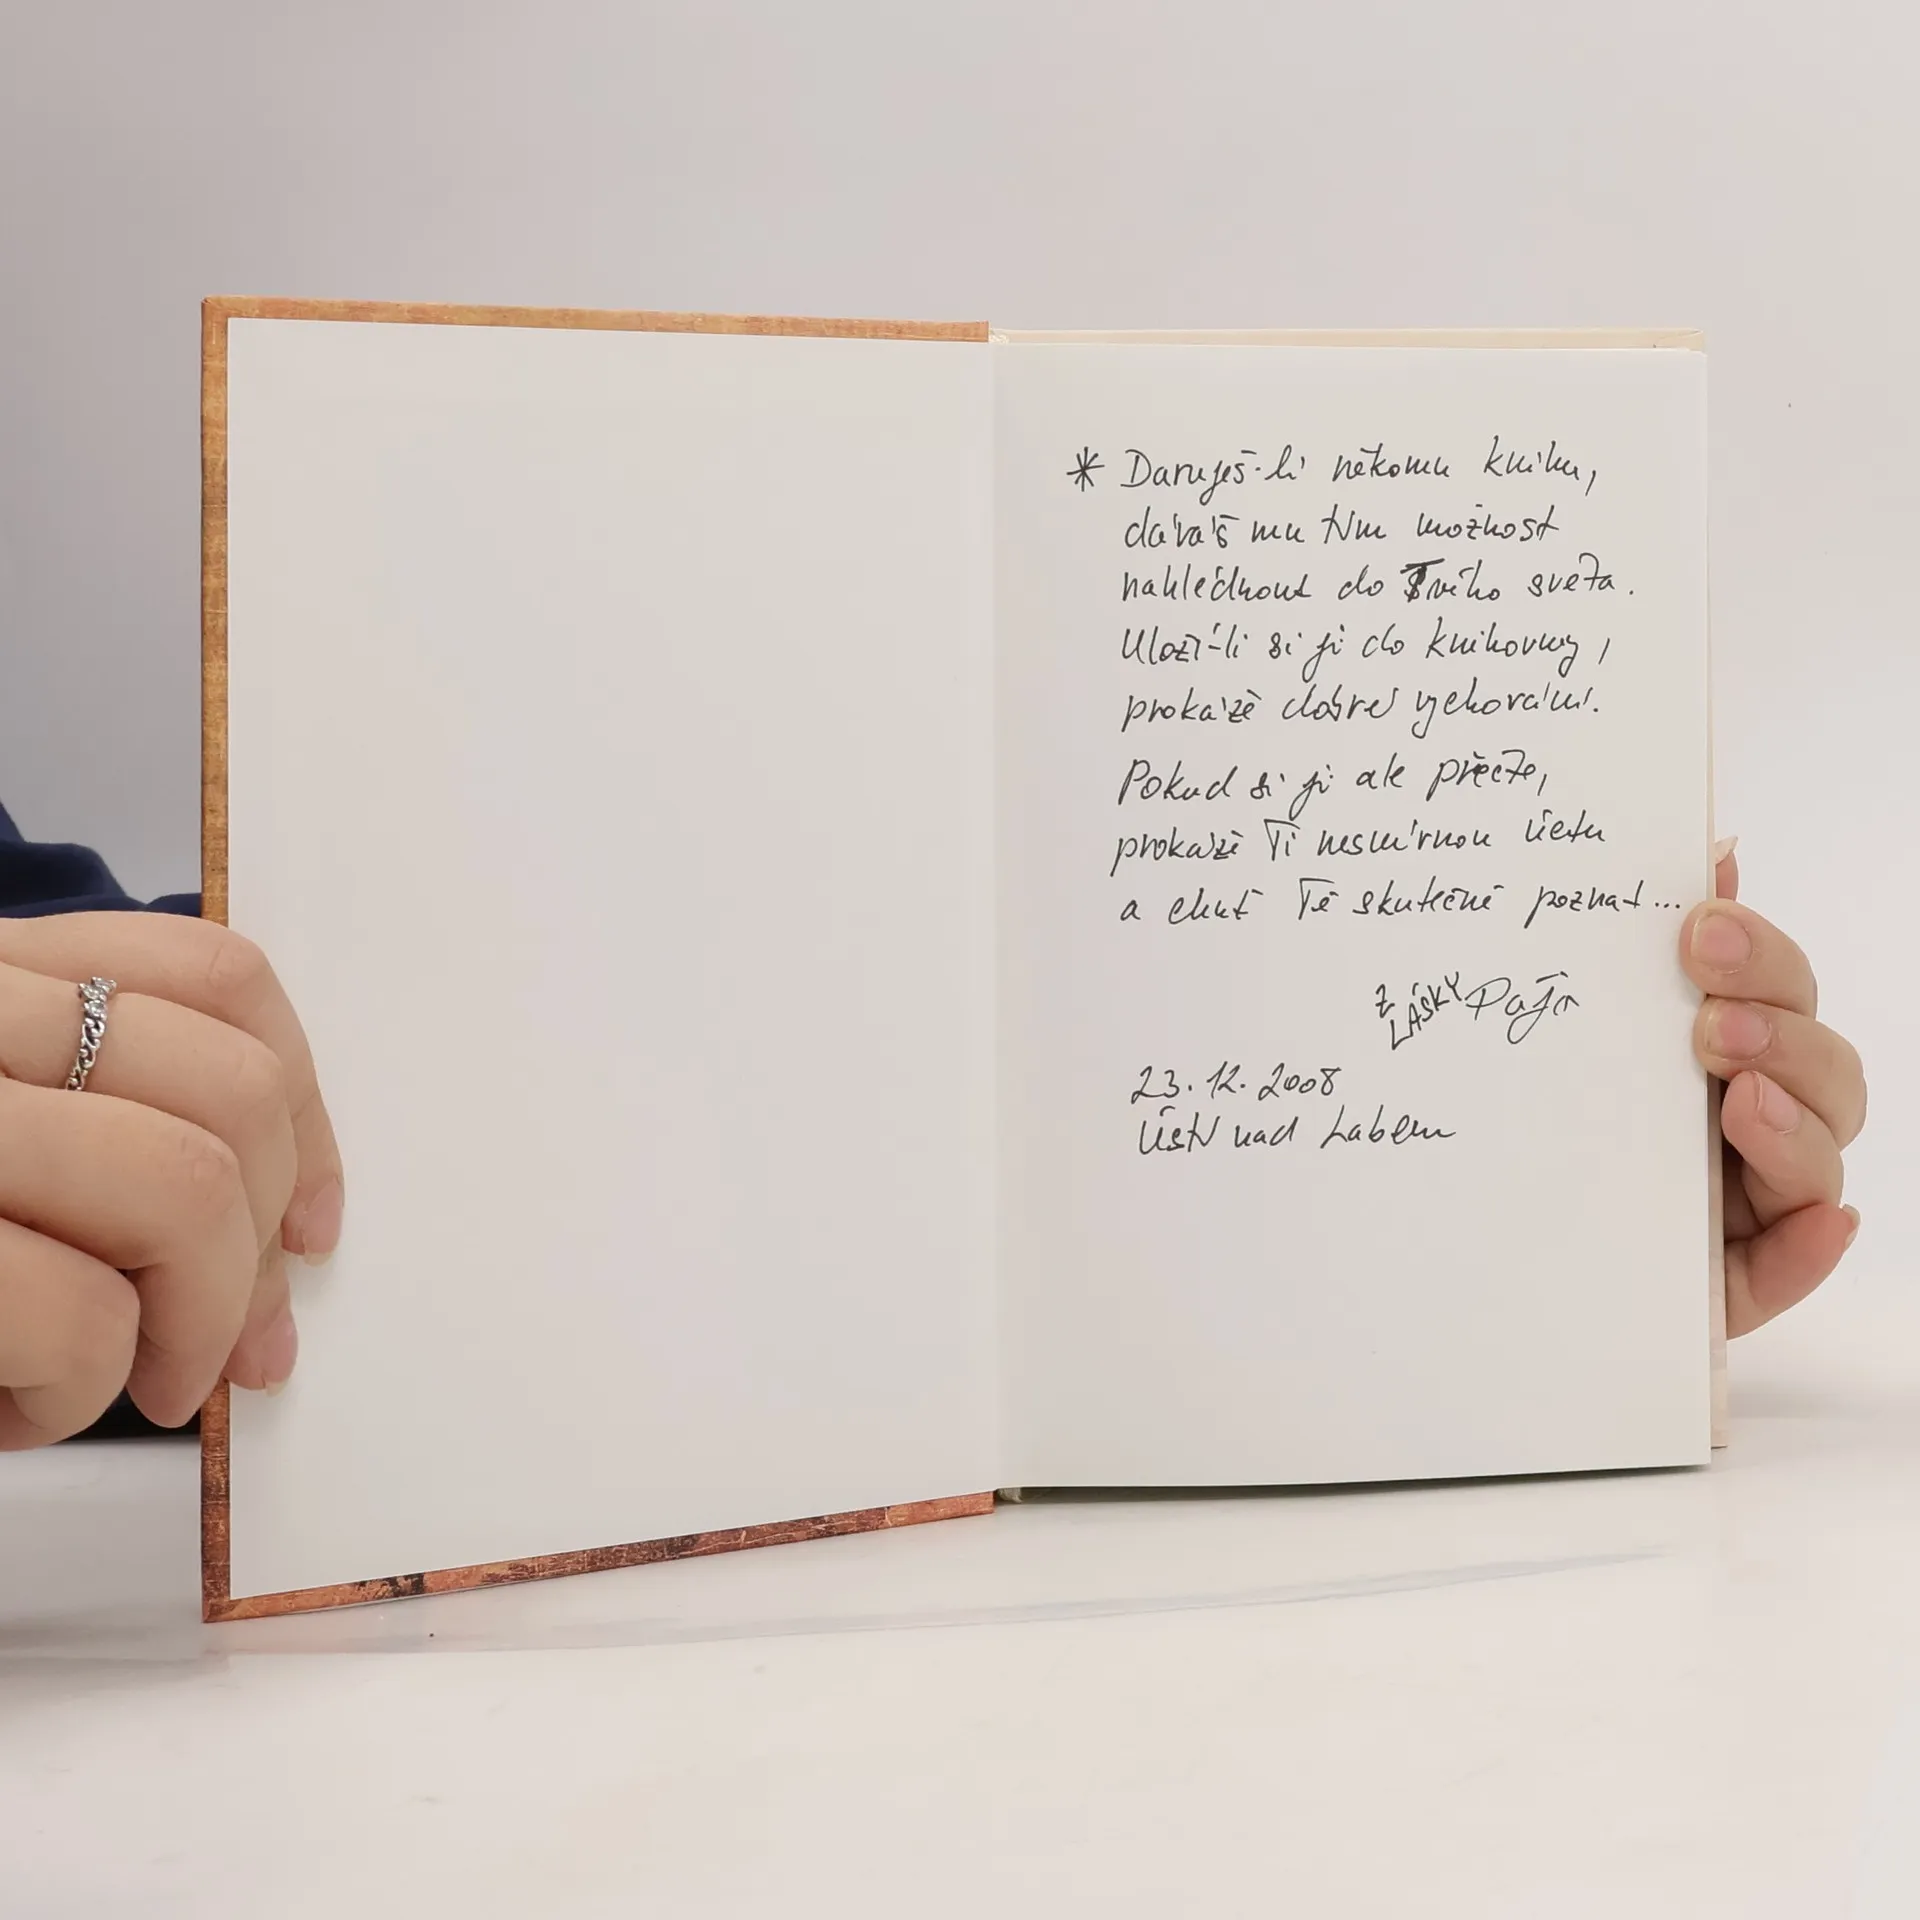 * Daruješ-li někomu knihu,
dáváš mu tím možnost
nahlédnout do Tvého světa.
Uloží-li si ji do knihovny,
prokáže dobré vychování.
Pokud si ji ale přečte,
prokáže Ti nesmírnou úctu
a chuť Tě skutečně poznat...
Z LÁSKY Pája
23.12.2008
Ústí nad Labem